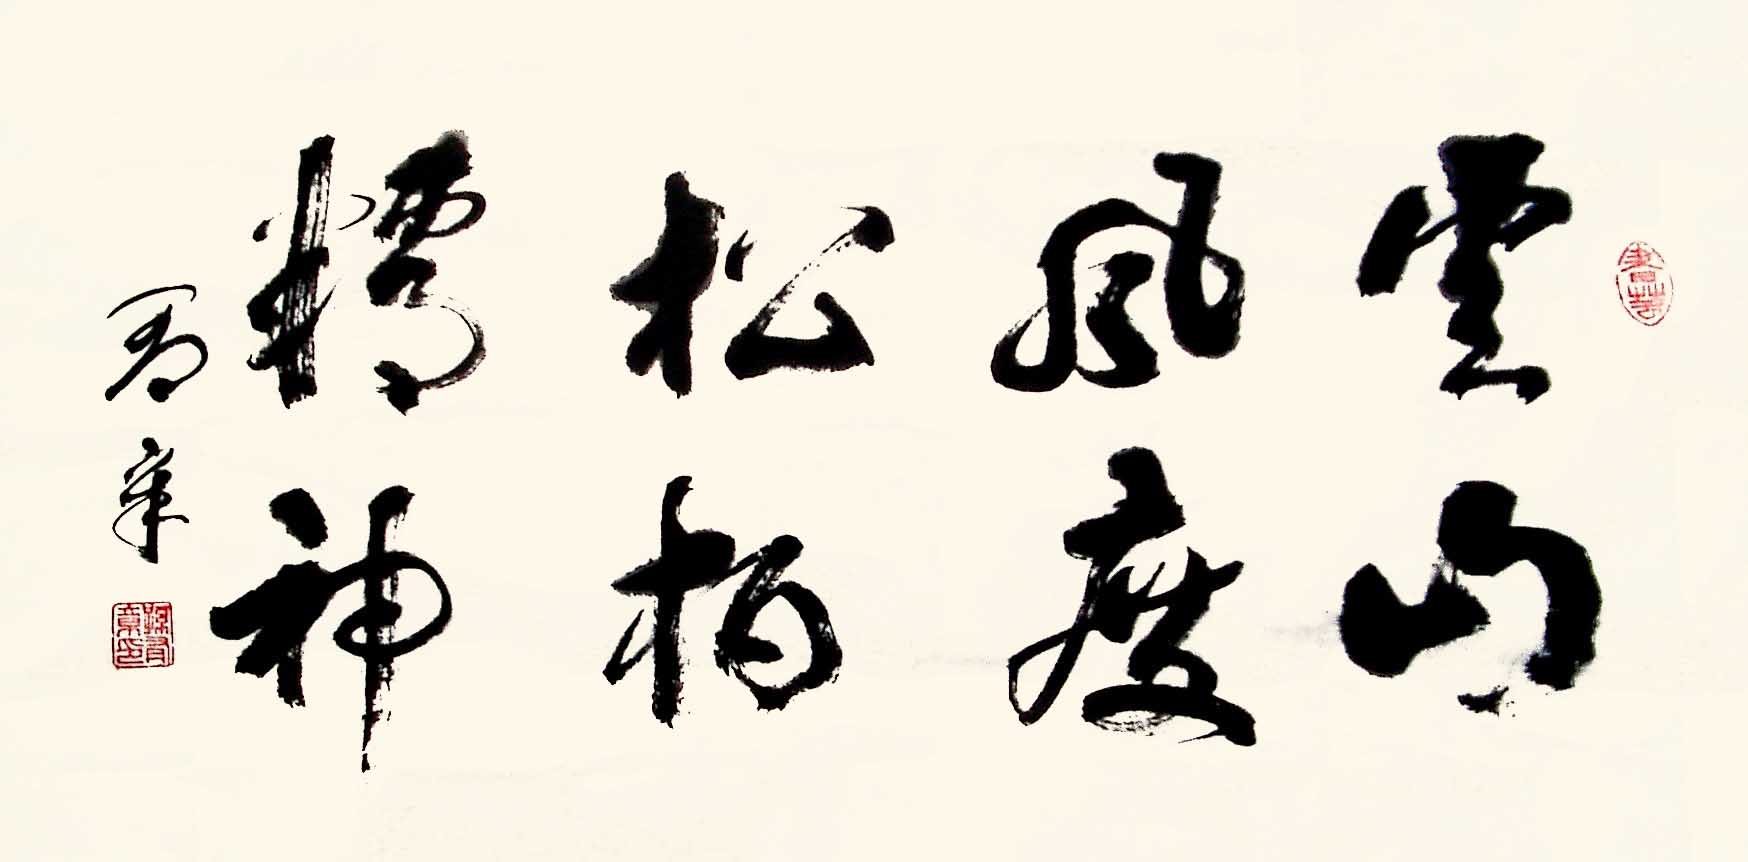 雲山
風度
松柏
精神